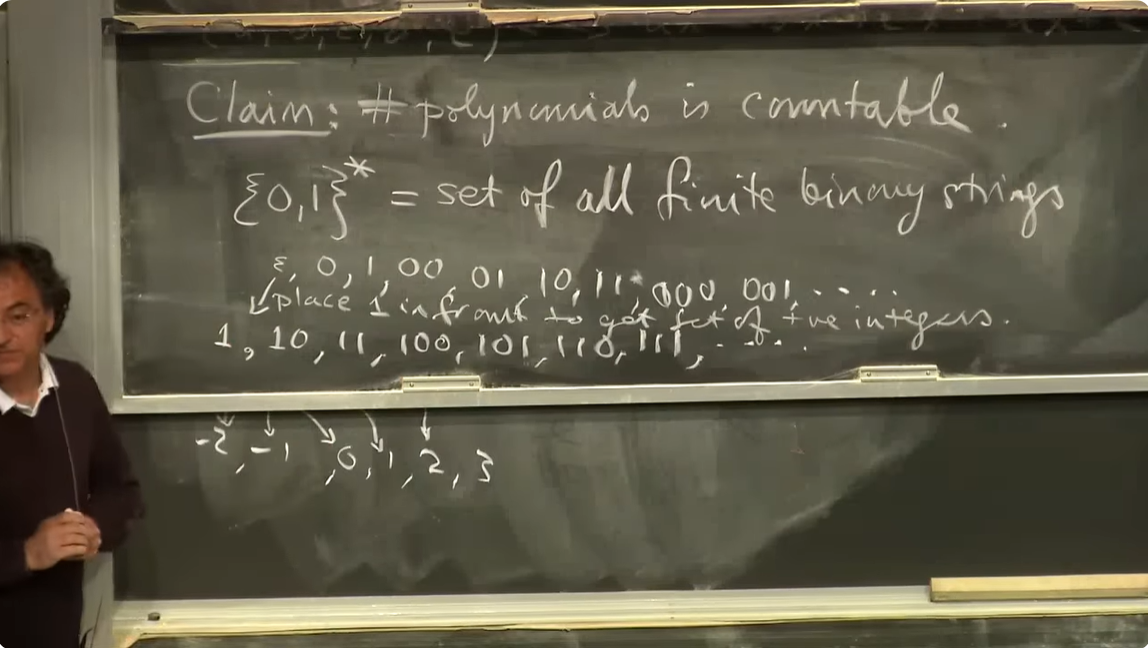 Claim: # polynomials is countable.
{0,1}* = set of all finite binary strings
ε, 0, 1, 00, 01, 10, 11, 000, 001, .....
place 1 in front to get set of +ve integers.
1, 10, 11, 100, 101, 110, 111, .....
-2, -1, 0, 1, 2, 3